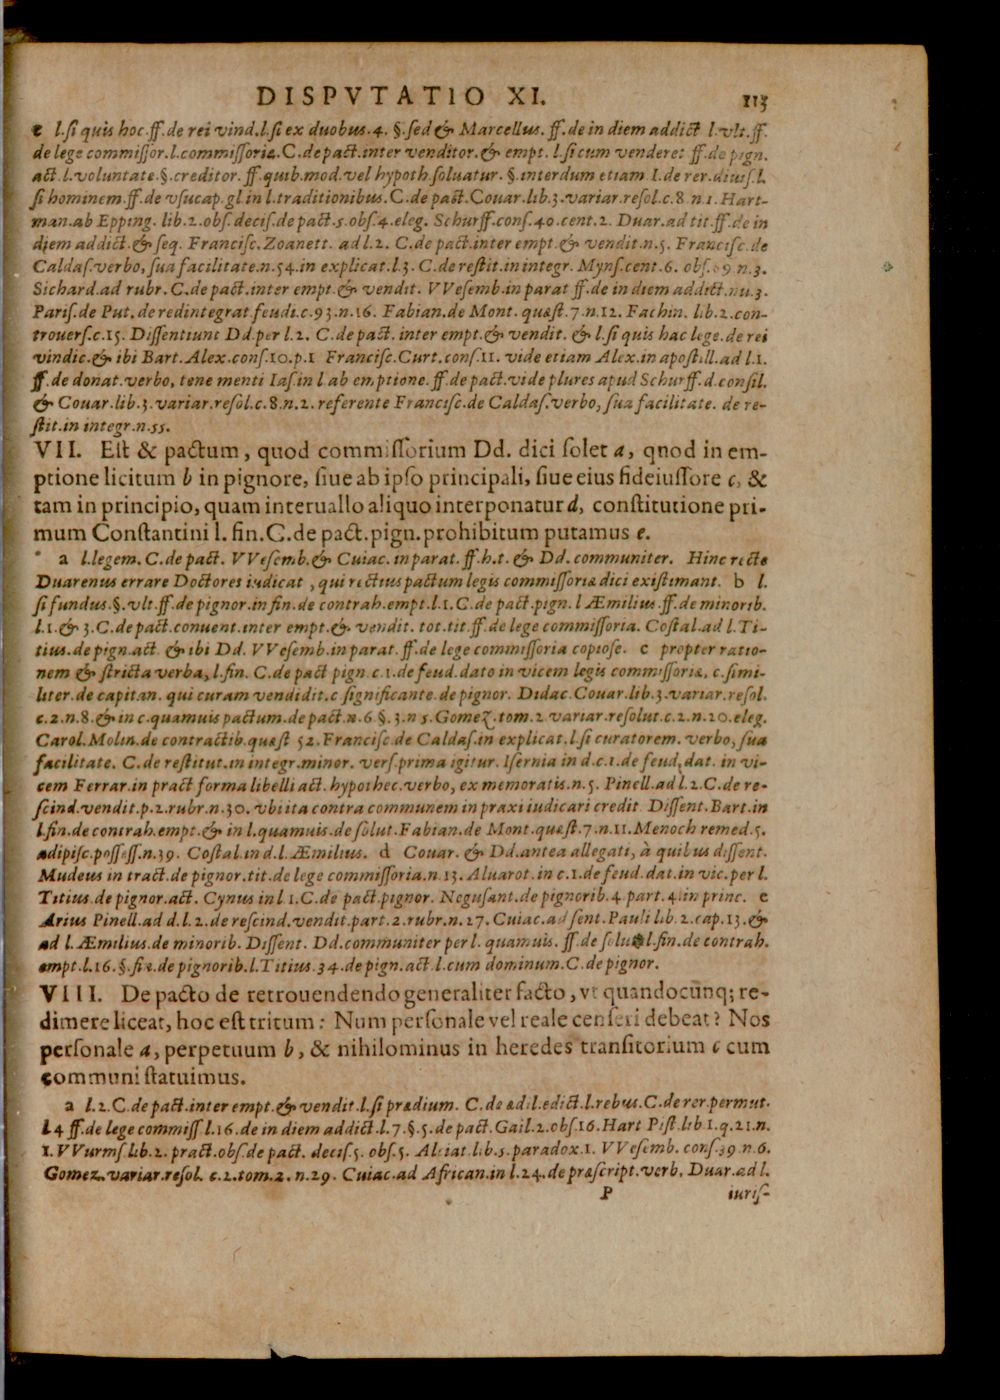 DISPVTATIO XI. 113
e l.ſi quis hoc.ff.de rei vind.l.ſi ex duobus.4. §.ſed & Marcellus. ff.de in diem addict l.vlt.ff.
de lege commiſſor.l.commiſſoria.C.de pact.inter venditor.& empt. l.ſi cum venderet ff.de pign.
act.l.voluntate.§.creditor. ff.quib.mod.vel hypoth.ſoluatur. §.interdum etiam I.de rer.diuiſ.l.
ſi hominem.ff.de vſucap.gl in l.traditionibus.C.de pact.Couar.lib.3.variar.reſol.c.8.n.1.Hart-
man.ab Epping. lib.2.obſ.deciſ.de pact.5.obſ.4.eleg. Schurff.conſ.40.cent.2. Duar.ad tit.ff.de in
diem addict.& ſeq. Franciſc.Zoanett. ad l.2. C.de pact.inter empt.& vendit.n.5. Franciſc.de
Caldaſ.verbo, ſua facilitate.n.54.in explicat.l.3. C.de reſtit.in integr. Mynſ.cent.6. obſ. n.3.
Sichard.ad rubr. C.de pact.inter empt.& vendit. VVeſemb.in parat ff.de in diem addict.nu.3.
Pariſ.de Put. de redintegrat feudi.c.93.n.16. Fabian.de Mont. quæſt.7.n.12. Fachin. lib.2.con-
trouerſ.c.15. Diſſentiunt Dd.per l.2. C.de pact. inter empt.& vendit. & l.ſi quis hac lege.de rei
vindic.& ibi Bart.Alex.conſ.10.p.1 Franciſc.Curt.conſ.11. vide etiam Alex.in apoſtill.ad l.1.
ff.de donat.verbo, tene menti Iaſ.in l ab emptione.ff.de pact.vide plures apud Schurff.d.conſil.
& Couar.lib.3.variar.reſol.c.8.n.2.referente Franciſc.de Caldaſ.verbo, ſua facilitate. de re-
ſtit.in integr.n.55.
VII. Eſt & pactum, quod commiſſorium Dd. dici ſolet a, quod in em-
ptione licitum b in pignore, ſiue ab ipſo principali, ſiue eius fideiuſſore c, &
tam in principio, quam interuallo aliquo interponatur d, conſtitutione pri-
mum Conſtantini l. fin.C.de pact.pign.prohibitum putamus e.
a l.legem.C.de pact. VVeſemb.& Cuiac.in parat.ff.h.t.& Dd.communiter. Hinc recte
Duarenus errare Doctores iudicat, qui rectius pactum legis commiſſoriæ dici exiſtimant. b l.
ſi fundus.§.vlt.ff.de pignor.in fin.de contrah.empt.l.1.C.de pact.pign.l Æmilius.ff.de minorib.
l.1.& 3.C.de pact.conuent.inter empt.& vendit. tot.tit.ff.de lege commiſſoria. Coſtal.ad l.Ti-
tius.de pign.act. & ibi Dd. VVeſemb.in parat. ff.de lege commiſſoria copioſe. c propter ratio-
nem & ſtricta verba, l.fin. C.de pact pign.c.1.de feud.dato in vicem legis commiſſoriæ, c.ſimi-
liter.de capitan. qui curam vendidit.c ſignificante.de pignor. Didac.Couar.lib.3.variar.reſol.
c.2.n.8.& in c.quamuis pactum.de pact.n.6.§.3.n 5.Gomez.tom.2 variar.reſolut.c.2.n.20.eleg.
Carol.Molin.de contractib.quæſt 52.Franciſc.de Caldaſ.in explicat.l.ſi curatorem. verbo, ſua
facilitate. C.de reſtitut.in integr.minor. verſ.prima igitur. Iſernia in d.c.1.de feud.dat. in vi-
cem Ferrar.in pract forma libelli act.hypothec.verbo, ex memoratis.n.5. Pinell.ad l.2.C.de re-
ſcind.vendit.p.2.rubr.n.30. vbi ita contra communem in praxi iudicari credit. Diſſent.Bart.in
l.fin.de contrah.empt.& in l.quamuis.de ſolut.Fabian.de Mont.quæſt.7.n.11.Menoch remed.5.
adipiſc.poſſeſſ.n.39. Coſtal.in d.l.Æmilius. d Couar. & Dd.antea allegati, à quibus diſſent.
Mudeus in tract.de pignor.tit.de lege commiſſoria.n.13.Aluarot.in c.1.de feud.dat.in vic.per l.
Titius.de pignor.act. Cynus in l 1.C.de pact.pignor. Neguſant.de pignorib.4.part.4.in princ. e
Arius Pinell.ad d.l.2.de reſcind.vendit.part.2.rubr.n.27. Cuiac.ad ſent.Pauli lib.2.cap.13.&
ad l.Æmilius.de minorib. Diſſent. Dd.communiter per l. quamuis. ff.de ſolut.l.fin.de contrah.
empt.l.16.§.fi de pignorib.l.Titius.34.de pign.act.l.cum dominum.C.de pignor.
VIII. De pacto de retrouendendo generaliter facto, vt quandocunq; re-
dimere liceat, hoc eſt tritum: Num perſonale vel reale cenſeri debeat? Nos
perſonale a, perpetuum b, & nihilominus in heredes tranſitorium c cum
communi ſtatuimus.
a l.2.C.de pact.inter empt.& vendit.l.ſi prædium. C.de ædil.edict.l.rebus.C.de rer.permut.
l.4 ff.de lege commiſſ l.16.de in diem addict.l.7.§.5.de pact.Gail.2.obſ.16.Hart Piſt.lib 1.q.21.n.
1.VVurmſ.lib.2.pract.obſ.de pact. deciſ.5. obſ.5. Alciat.lib.5.paradox.1. VVeſemb. conſ.39.n.6.
Gomez.variar.reſol. c.2.tom.2. n.29. Cuiac.ad African.in l.24.de præſcript.verb. Duar.ad l.
P iuriſ-